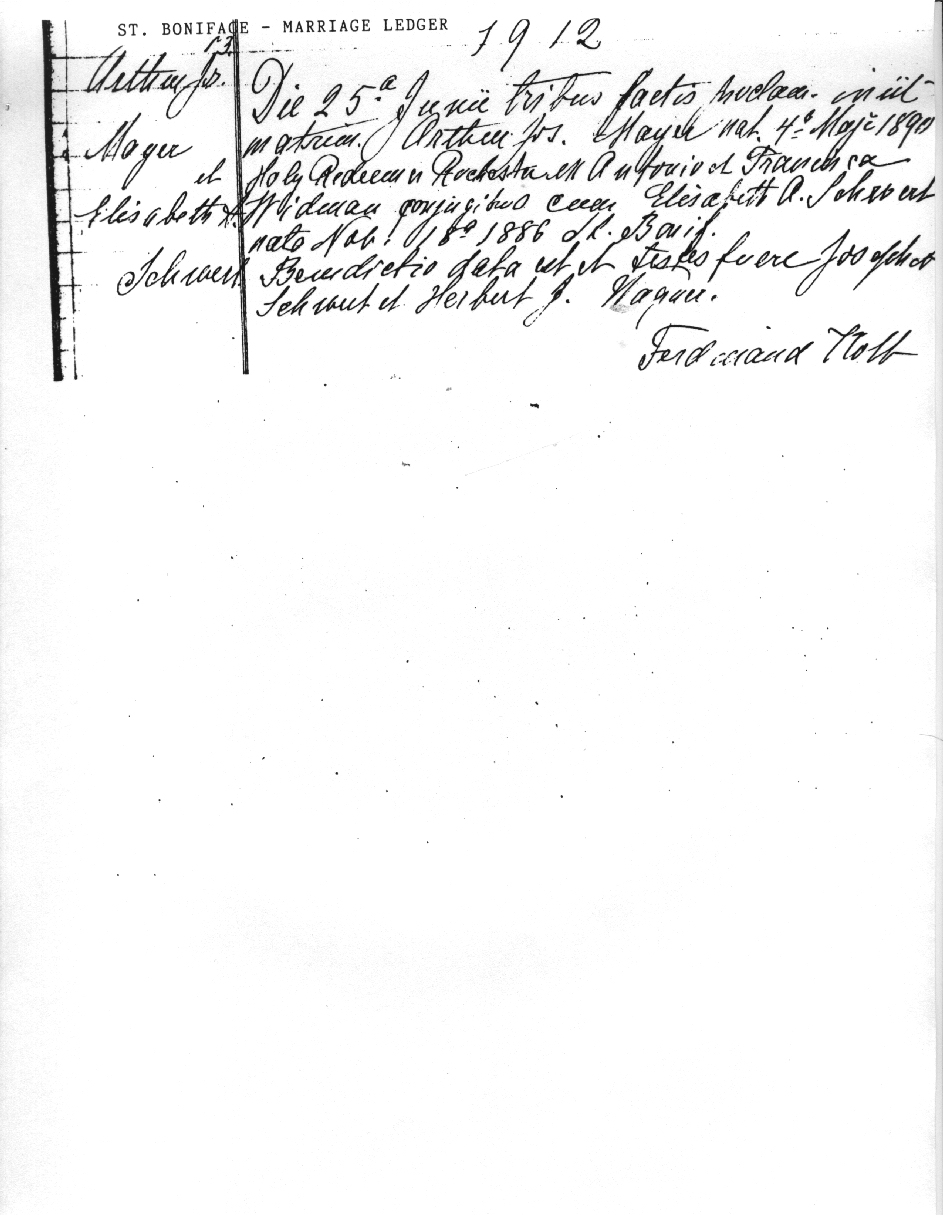 ST. BONIFACE - MARRIAGE LEDGER
1912
Arthur Jos.
Mayer
et
Elisabeth A.
Schwert
Die 25ª Junii tribus factis proclam. iniit
matrim. Arthur Jos. Mayer nat. 4ª Maji 1890
Holy Redeemer Rochester ex Antonio et Francisca
Widman conjugibus cum Elisabeth A. Schwert
nata Nob. 18ª 1886 St. Bonif.
Benedictio data est et testes fuere Joseph
Schwert et Herbert J. Wagner.
Ferdinand Kolb